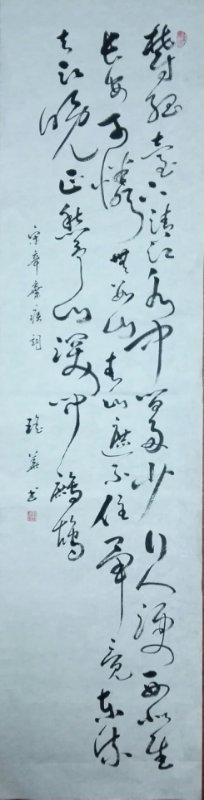 鬱孤臺下清江水中間多少行人淚西北望
長安可憐無數山青山遮不住畢竟東流
去江晚正愁余山深聞鷓鴣
宋辛棄疾詞
瑤 書